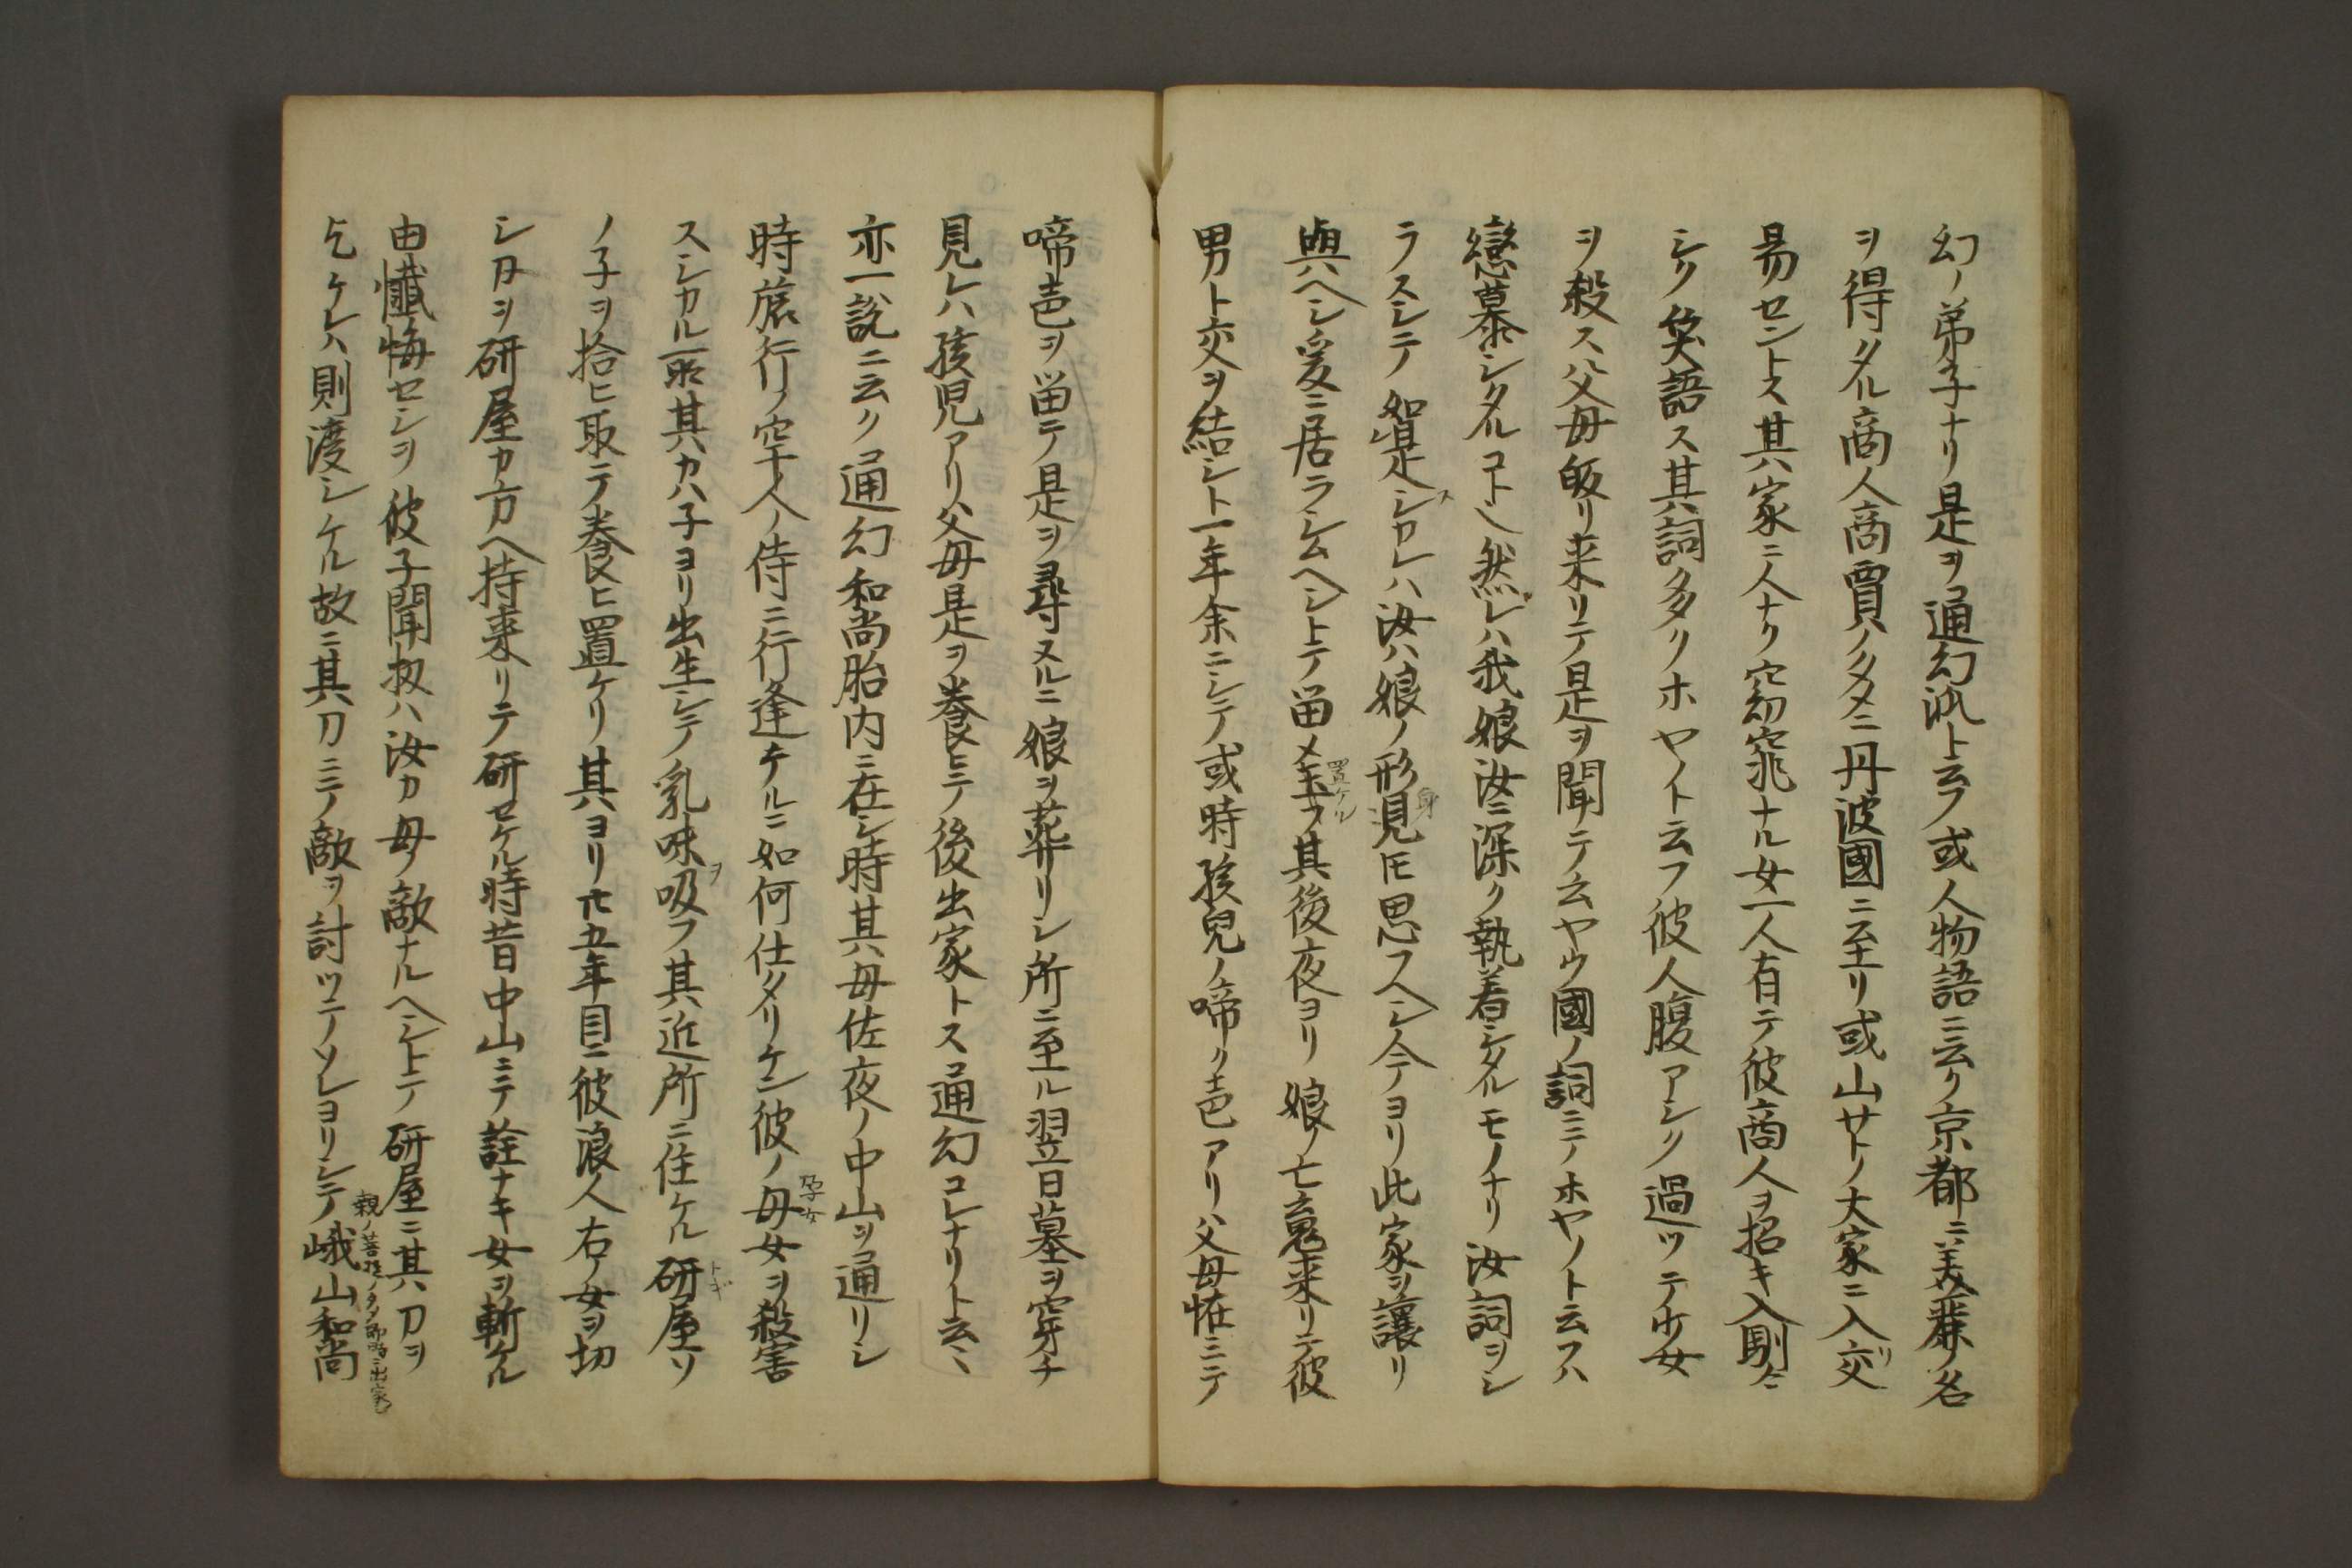 幻ノ弟子ナリ是ヲ通幻派ト云フ或人物語ニ云ク京都ニ美麗ノ名
ヲ得タル商人商買ノタメニ丹波國ニ至リ或山サトノ大家ニ入リ交
易セントス其家ニ人ナク窈窕ナル女一人有テ彼商人ヲ招キ入馴々
シク笑語ス其詞多クホヤト云フ彼人腹アシク過ツテ少女
ヲ殺ス父母皈リ来リテ是ヲ聞テ云ヤウ國ノ詞ニテホヤノト云フハ
戀慕シタルコト也然レハ我娘汝ニ深ク執着シタルモノナリ汝詞ヲシ
ラスシテ如是シカレハ汝ハ娘ノ形見身トモ思フヘシ今ヨリ此家ヲ讓リ
與ヘン爰ニ居ラシムヘシトテ留メ置ケル其後夜ヨリ娘ノ亡魂来リテ彼
男ト交ヲ結シト一年余ニシテ或時孩兒ノ啼ク声アリ父母怪ニテ
啼声ヲ留テ是ヲ尋ヌルニ娘ヲ葬リシ所ニ至ル翌日墓ヲ穿チ
見レハ孩児アリ父母是ヲ養ヒテ後出家トス通幻コレナリト云々
亦一説ニ云ク通幻和尚胎内ニ在シ時其母佐夜ノ中山ヲ通リシ
時旅行ノ空人ノ侍ニ行逢ケルニ如何仕タリケン彼ノ母孕女女ヲ殺害
スシカル所其カハ子ヨリ出生シテ乳味ヲ吸フ其近所ニ住ケル研屋ソ
ノ子ヲ拾ヒ取テ養ヒ置ケリ其ヨリ廿五年目ニ彼浪人右ノ女ヲ切
シ刀ヲ研屋カ方ヘ持来リテ研セケル時昔日中山ニテ詮ナキ女ヲ斬ケル
由懺悔セシヲ彼子聞扨ハ汝カ母ノ敵ナルヘシトテ研屋ニ其刀ヲ
乞ケレハ則渡シケル故ニ其刀ニテ敵ヲ討ツテソレヨリシテ親ノ菩提ノタメ即時ニ出家シ峨山和尚